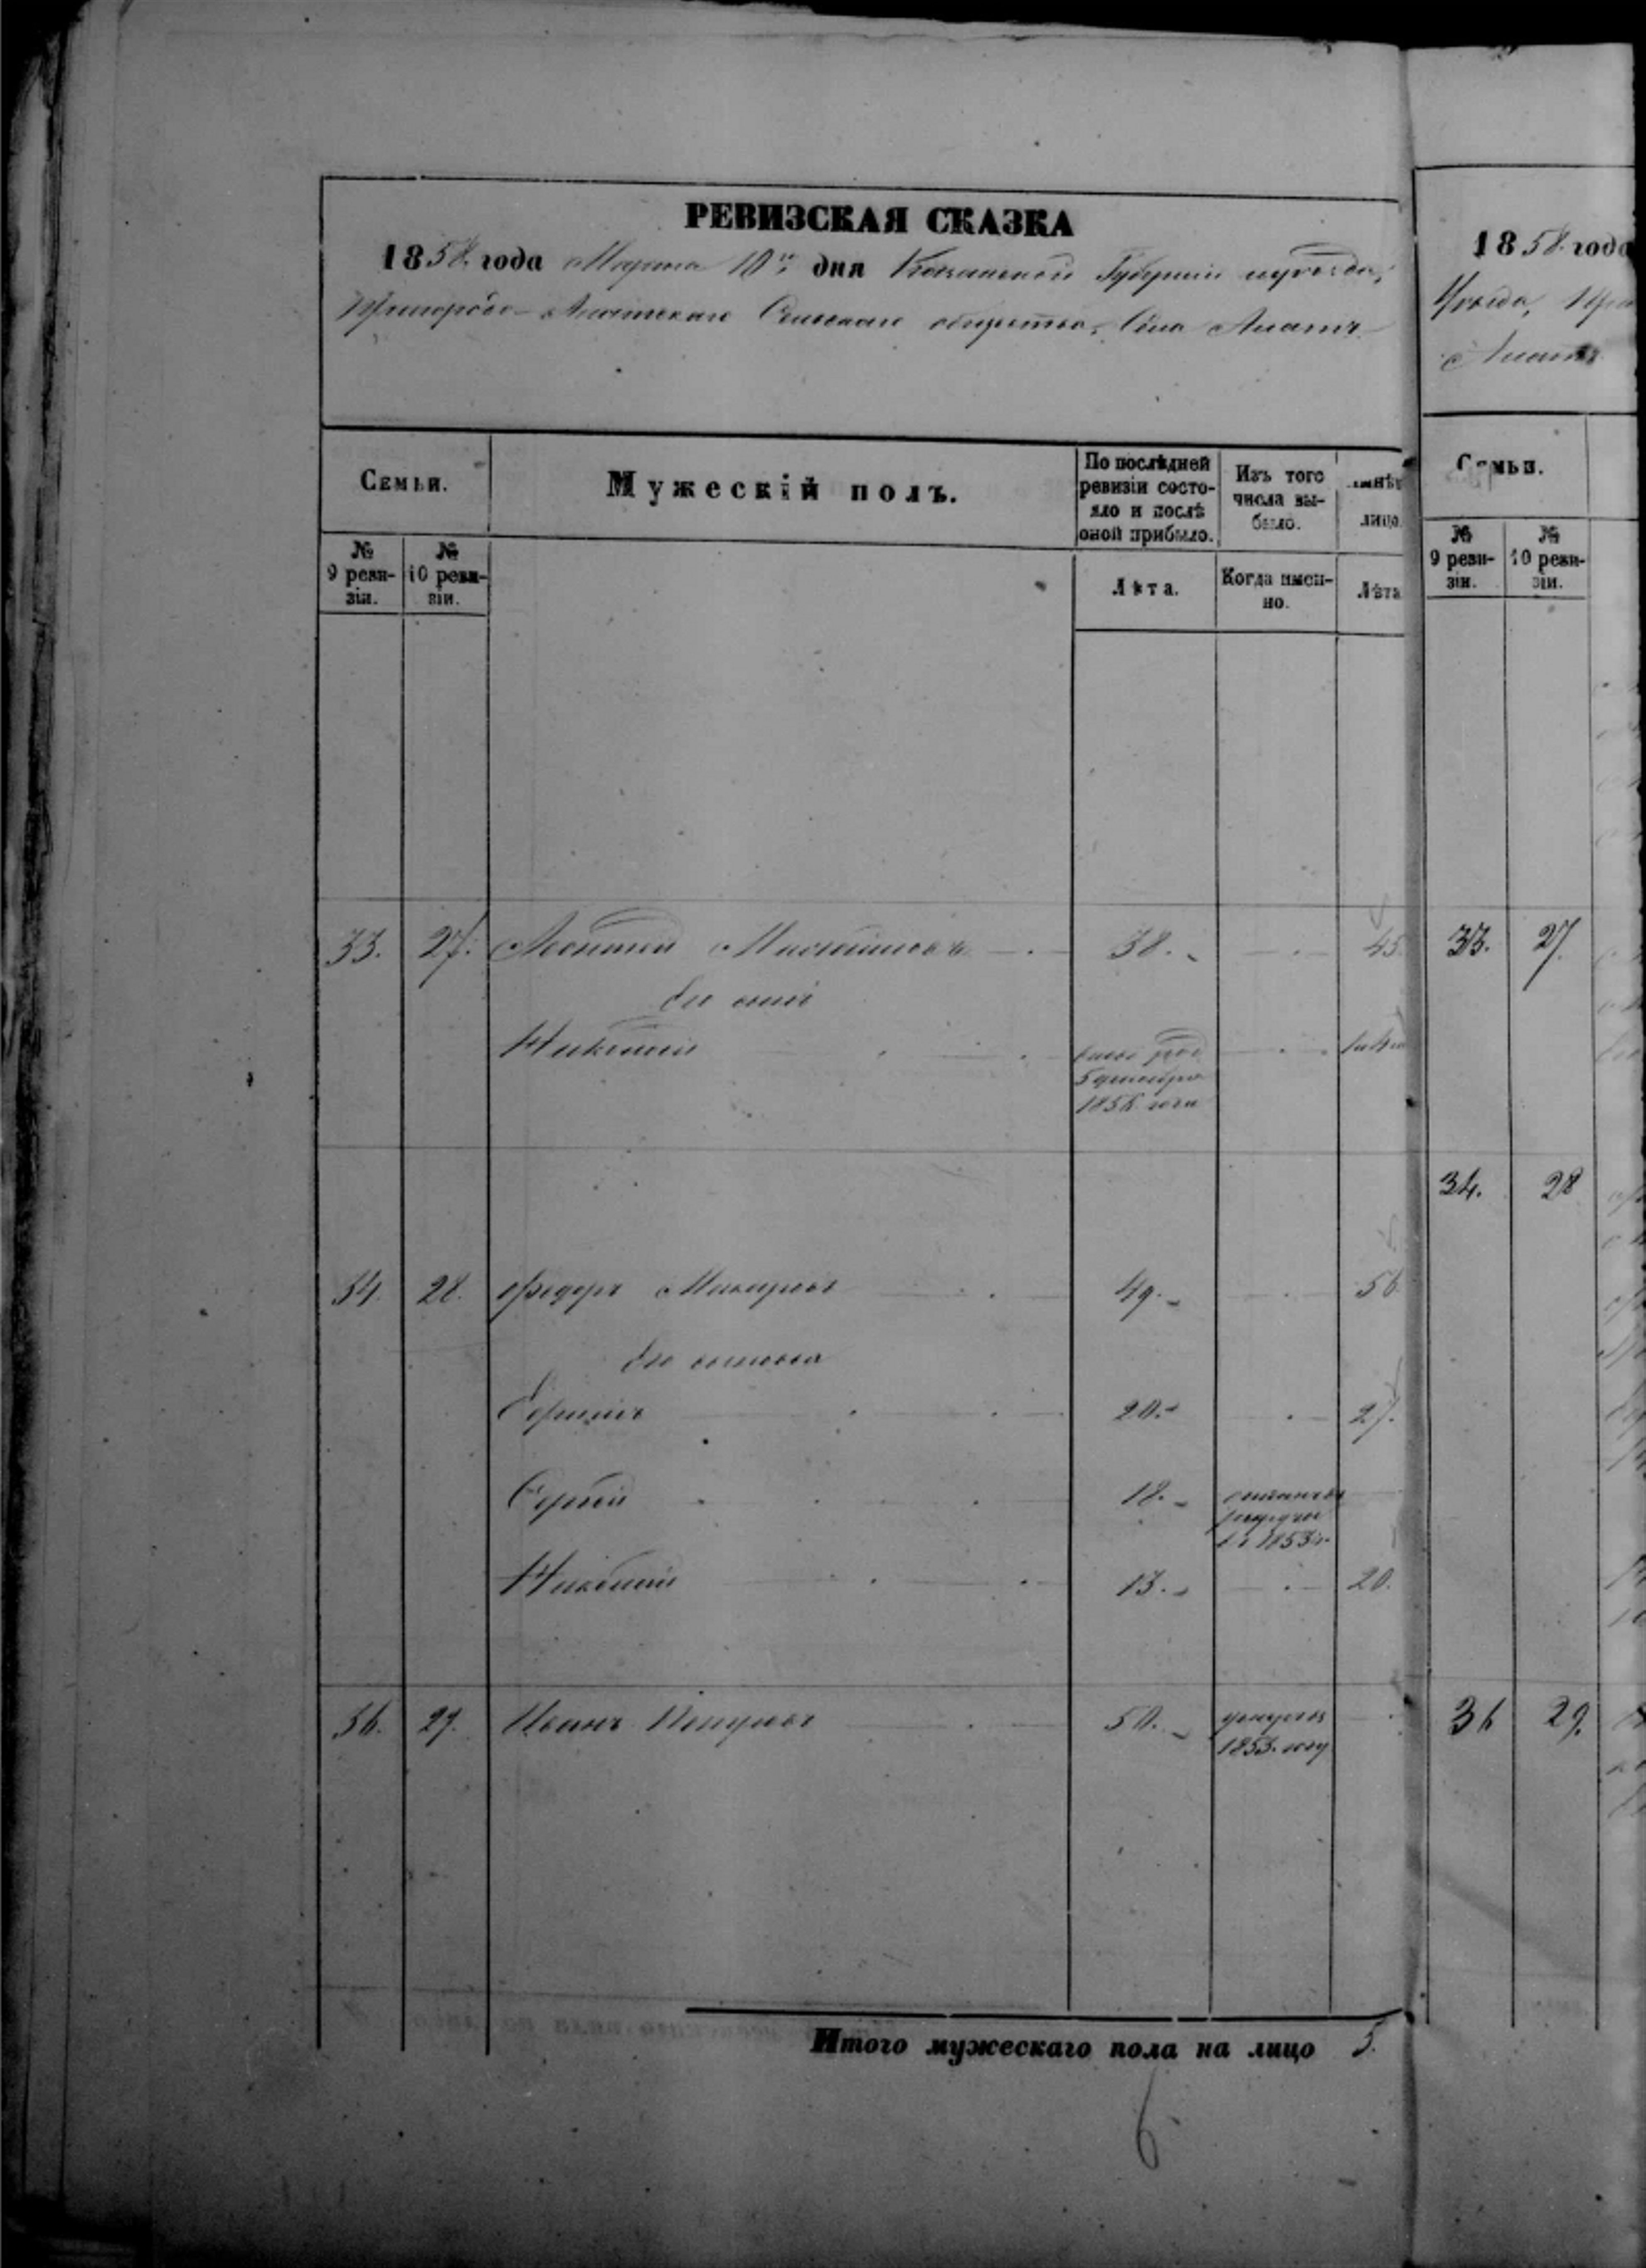 РЕВИЗСКАЯ СКАЗКА
1858 года Марта 10го дня Казанской Губерніи и уѣзда,
Пригородо-Алатскаго Сельскаго общества, Села Алатъ
Семьи.
Мужескій полъ.
По послѣдней ревизіи состояло и послѣ оной прибыло.
Изъ того числа выбыло.
лицо
№ 9 ревизіи.
№ 10 ревизіи.
Лѣта.
Когда именно.
Лѣта
33. 27. Леонтій 38. 45.
Его сынъ
Никитій
1858 года
34. 28. Федоръ Макаровъ 49. 56
Его сыновья
Ефимъ 20. 27.
Сергѣй 18. рекруты въ 1853 г.
Никитій 13. 20.
36. 29. Иванъ 50. умеръ въ 1853 году
Итого мужескаго пола на лицо 5.
6
1858 года
Уѣзда, При
Алатъ
Семьи.
№ 9 ревизіи.
№ 10 ревизіи.
33. 27.
34. 28
36 29.